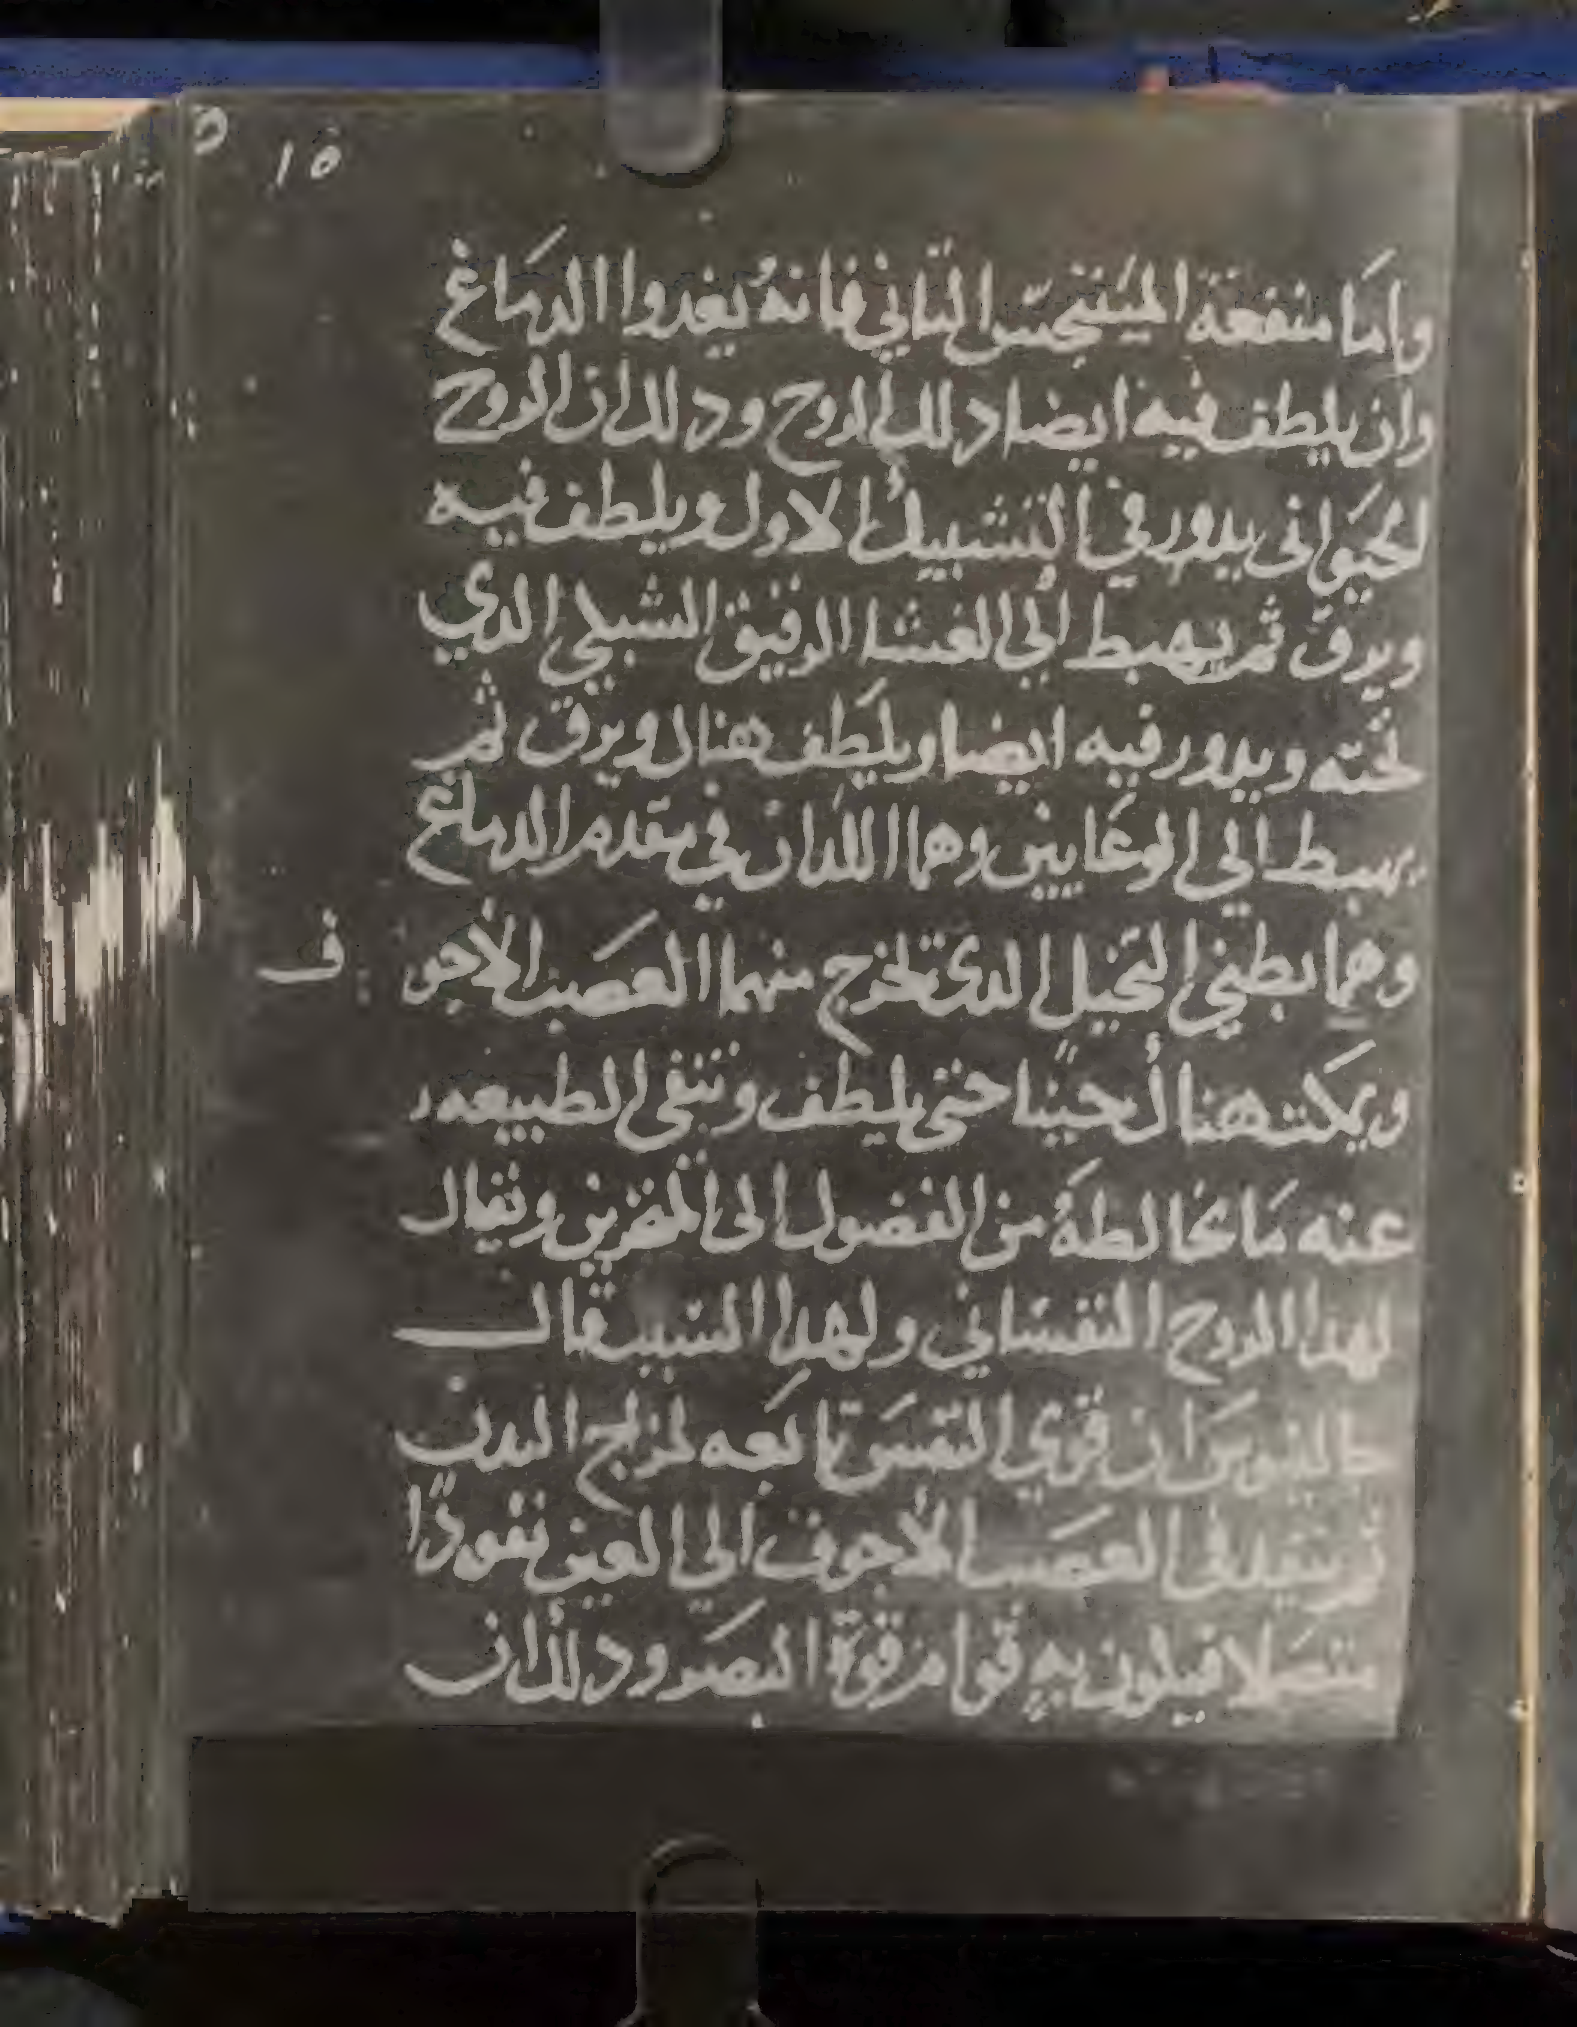 ١٥
واما منفعة المنتجس الثاني فانه يغدوا الدماغ
وان يلطف فيه ايضا دلك الروح ودلك ان الروح
الحيواني يدور في التشبيك الاول ويلطف فيه
ويرق ثم يهبط الي الغشا الرقيق الشبكي الدي
تحته ويدور فيه ايضا ويلطف هناك ويرق ثم
يهبط الي الوعايين وهما اللدان في مقدم الدماغ
وهما بطني التخيل الدى تخرج منهما العصب الاجو ف
ويمكث هناك حينا حتى يلطف وتنقى الطبيعه
عنه ما يخالطه من الفضول الى المنخرين ويقال
لهدا الروح النفساني ولهدا السبب قال
جالينوس ان قوي النفس تابعه لمزاج البدن
ثم ينفد في العصب الاجوف الي العين نفودا
متصلا فيكون به قوام قوة البصر ودلك ان